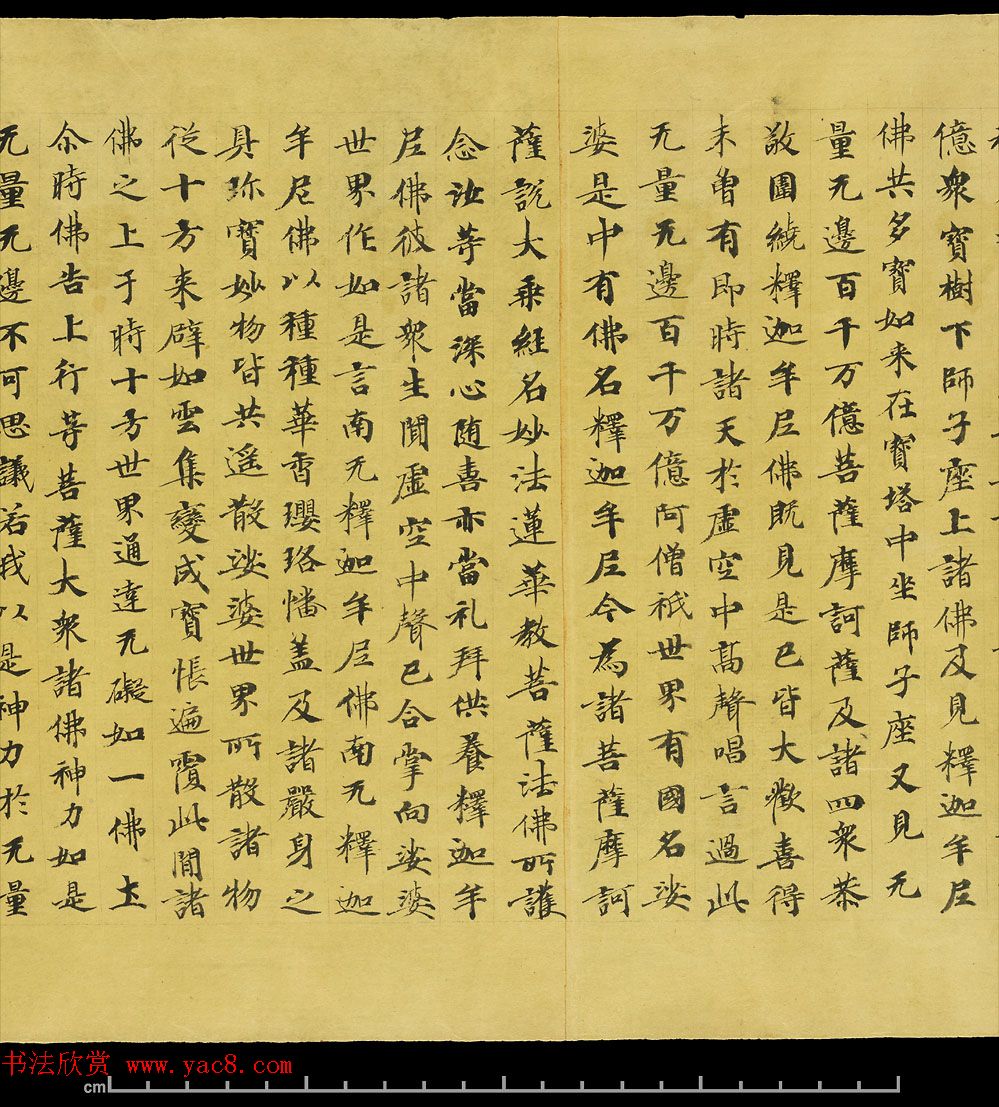 億衆寶樹下師子座上諸佛及見釋迦牟尼
佛共多寶如来在寶塔中坐師子座又見无
量无邊百千万億菩薩摩訶薩及諸四衆恭
敬圍繞釋迦牟尼佛既見是已皆大歡喜得
未曽有即時諸天於虛空中髙聲唱言過此
无量无邊百千万億阿僧祇世界有國名娑
婆是中有佛名釋迦牟尼今為諸菩薩摩訶
薩説大乗經名妙法蓮華教菩薩法佛所護
念汝等當深心随喜亦當礼拜供養釋迦牟
尼佛彼諸衆生聞虛空中聲已合掌向娑婆
世界作如是言南无釋迦牟尼佛南无釋迦
牟尼佛以種種華香瓔珞幡盖及諸嚴身之
具珎寶妙物皆共遥散娑婆世界所散諸物
從十方来辟如雲集變成寶帳遍覆此間諸
佛之上于時十方世界通達无礙如一佛土
尒時佛告上行等菩薩大衆諸佛神力如是
无量无邊不可思議若我以是神力於无量
书法欣赏 www.yac8.com
cm